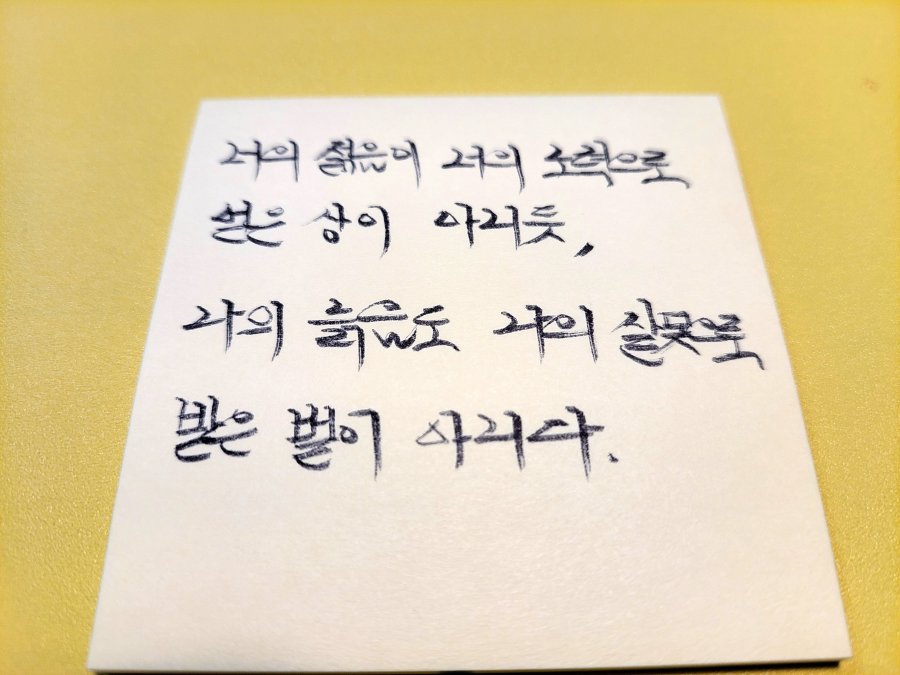 너의 젊음이 너의 노력으로
얻은 상이 아니듯,
나의 늙음도 나의 잘못으로
받은 벌이 아니다.